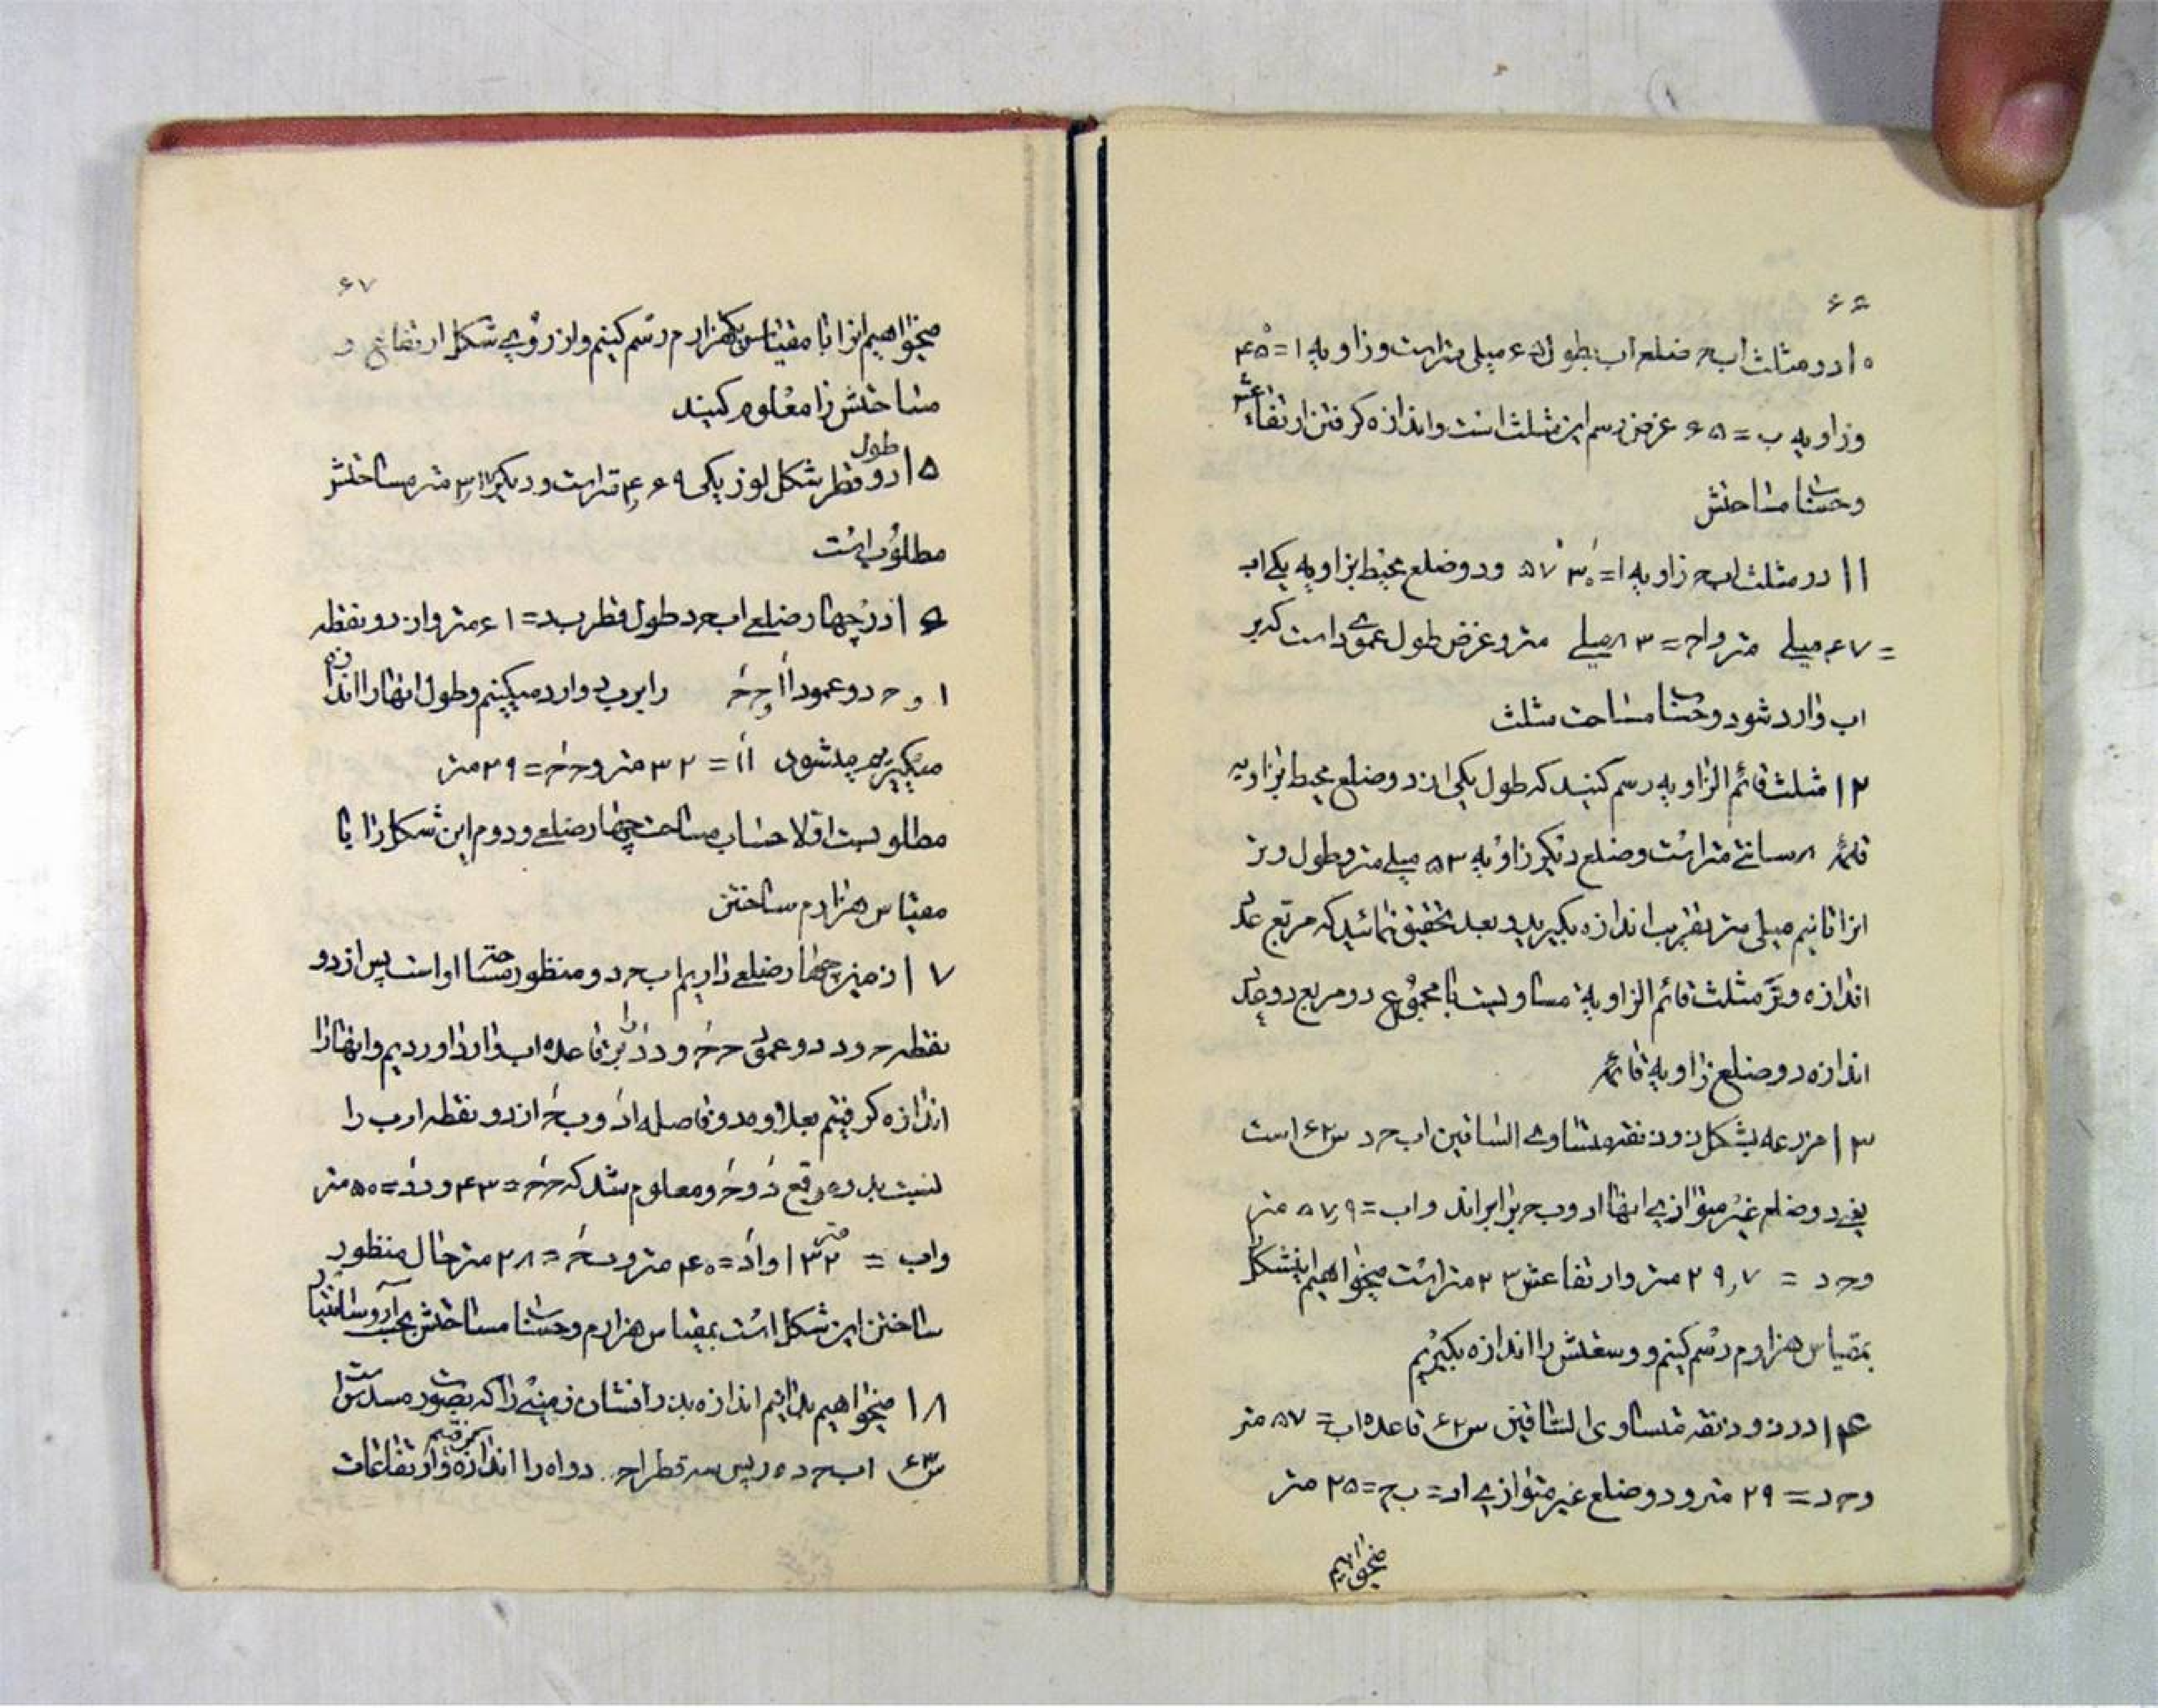 ۶۶
۱۰ در مثلث اب‍ح ضلع اب بطول ۶۵ میلی متر است و زاویه ا = ۴۵
و زاویه ب = ۶۵ غرض رسم این مثلث است و اندازه کرفتن ارتفاعش
و حساب مساحتش
۱۱ در مثلث اب‍ح زاویه ا = ۳۰ ۵۷ و دو ضلع محیط بزاویه یکی اب
= ۶۷ میلے متر و اح = ۸۳ میلے متر و غرض طول عمودی است که بر
اب وارد شود و حساب مساحت مثلث
۱۲ مثلث قائم الزاویه رسم کنید که طول یکی از دو ضلع محیط بزاویه
قائمه ۸ سانتے متر است و ضلع دیکر زاویه ۵۲ میلے متر و طول وتر
انرا تا نیم میلی متر تقریب اندازه بکیرید و بعد تحقیق نمائید که مربع عدد
اندازه وتر مثلث قائم الزاویه مساویست با مجموع دو مربع دو عدد
اندازه دو ضلع زاویه قائمه
۱۳ مزرعه بشکل ذوذنقه متساوی الساقین اب‍ح د س ۶۲ است
یعنے دو ضلع غیر متوازے انها اد و ب‍ح برابراند و اب = ۵۷٫۹ متر
و ح د = ۲۹٫۷ متر و ارتفاعش ۲۳ متر است میخواهیم اینشکل را
بمقیاس هزارم رسم کنیم و وسعتش را اندازه بکیریم
۱۴ در ذوذنقه متساوی الساقین س ۶۲ قاعده اب = ۵۷ متر
و ح د = ۲۹ متر و دو ضلع غیر متوازے اد = ب‍ح = ۲۵ متر
میخواهیم
۶۷
میخواهیم انرا با مقیاس یکهزارم رسم کنیم و از روی شکل ارتفاع و
مساحتش را معلوم کنید
۱۵ طول دو قطر شکل لوز یکی ۴٫۶۹ متر است و دیکر ۳٫۱۷ متر مساحتش
مطلوب است
۱۶ در چهار ضلعے اب‍ح د طول قطر ب د = ۶۱ متر و از دو نقطه
ا و ح دو عمود اا و ح‍ح را بر ب د وارد میکنیم و طول انها را اندازه
میکیریم میشود اا = ۳۲ متر و ح‍ح = ۲۹ متر
مطلوبست اولا حساب مساحت چهار ضلعے و دوم این شکل را با
مقیاس هزارم ساختن
۱۷ زمین چهار ضلعے داریم اب‍ح د و منظور مساحت او است پس از دو
نقطه ح و د دو عمود ح‍ح و دد را بر قاعده اب وارد اوردیم و انها را
اندازه کرفتیم بعلاوه دو فاصله اد و ب‍ح از دو نقطه ا و ب را
نسبت بدو موقع د و ح و معلوم شد که ح‍ح = ۴۳ و دد = ۵۰ متر
و اب = ۱۳۲ متر و اد = ۴۰ متر و ب‍ح = ۲۸ متر حال منظور
ساختن این شکل است بمقیاس هزارم و حساب مساحتش بحسب آر و سانتیار
۱۸ میخواهیم بدانیم اندازه بذر افشان زمینے را که بصورت مسدس است
س ۶۳ اب‍ح د ه ر پس سه قطر اح د و اه را اندازه کرفتیم و ارتفاعات